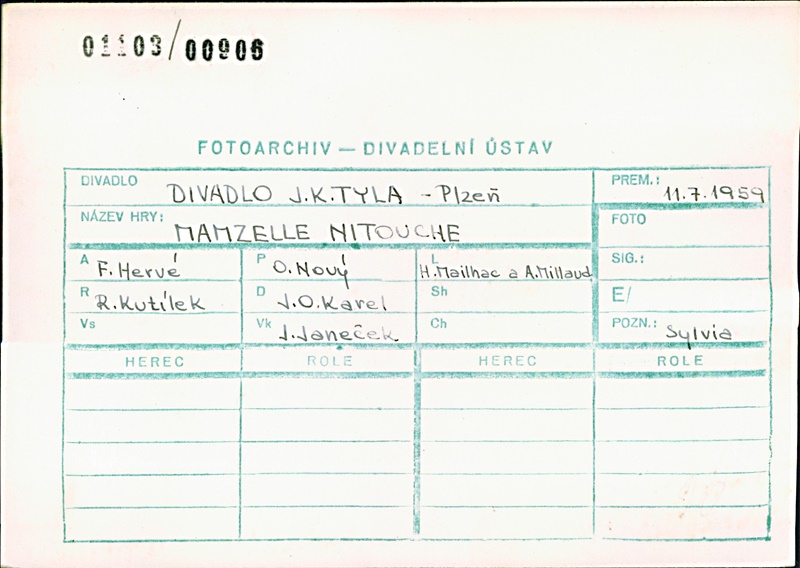 01103/00906
FOTOARCHIV — DIVADELNÍ ÚSTAV
DIVADLO DIVADLO J.K.TYLA - Plzeň PREM.: 11.7.1959
NÁZEV HRY: MAMZELLE NITOUCHE FOTO
A F. Hervé P O. Nový L H. Mailhac a A. Millaud SIG.:
R R. Kutílek D J.O. Karel Sh E/
Vs Vk J. Janeček Ch POZN.: Sylvia
HEREC ROLE HEREC ROLE